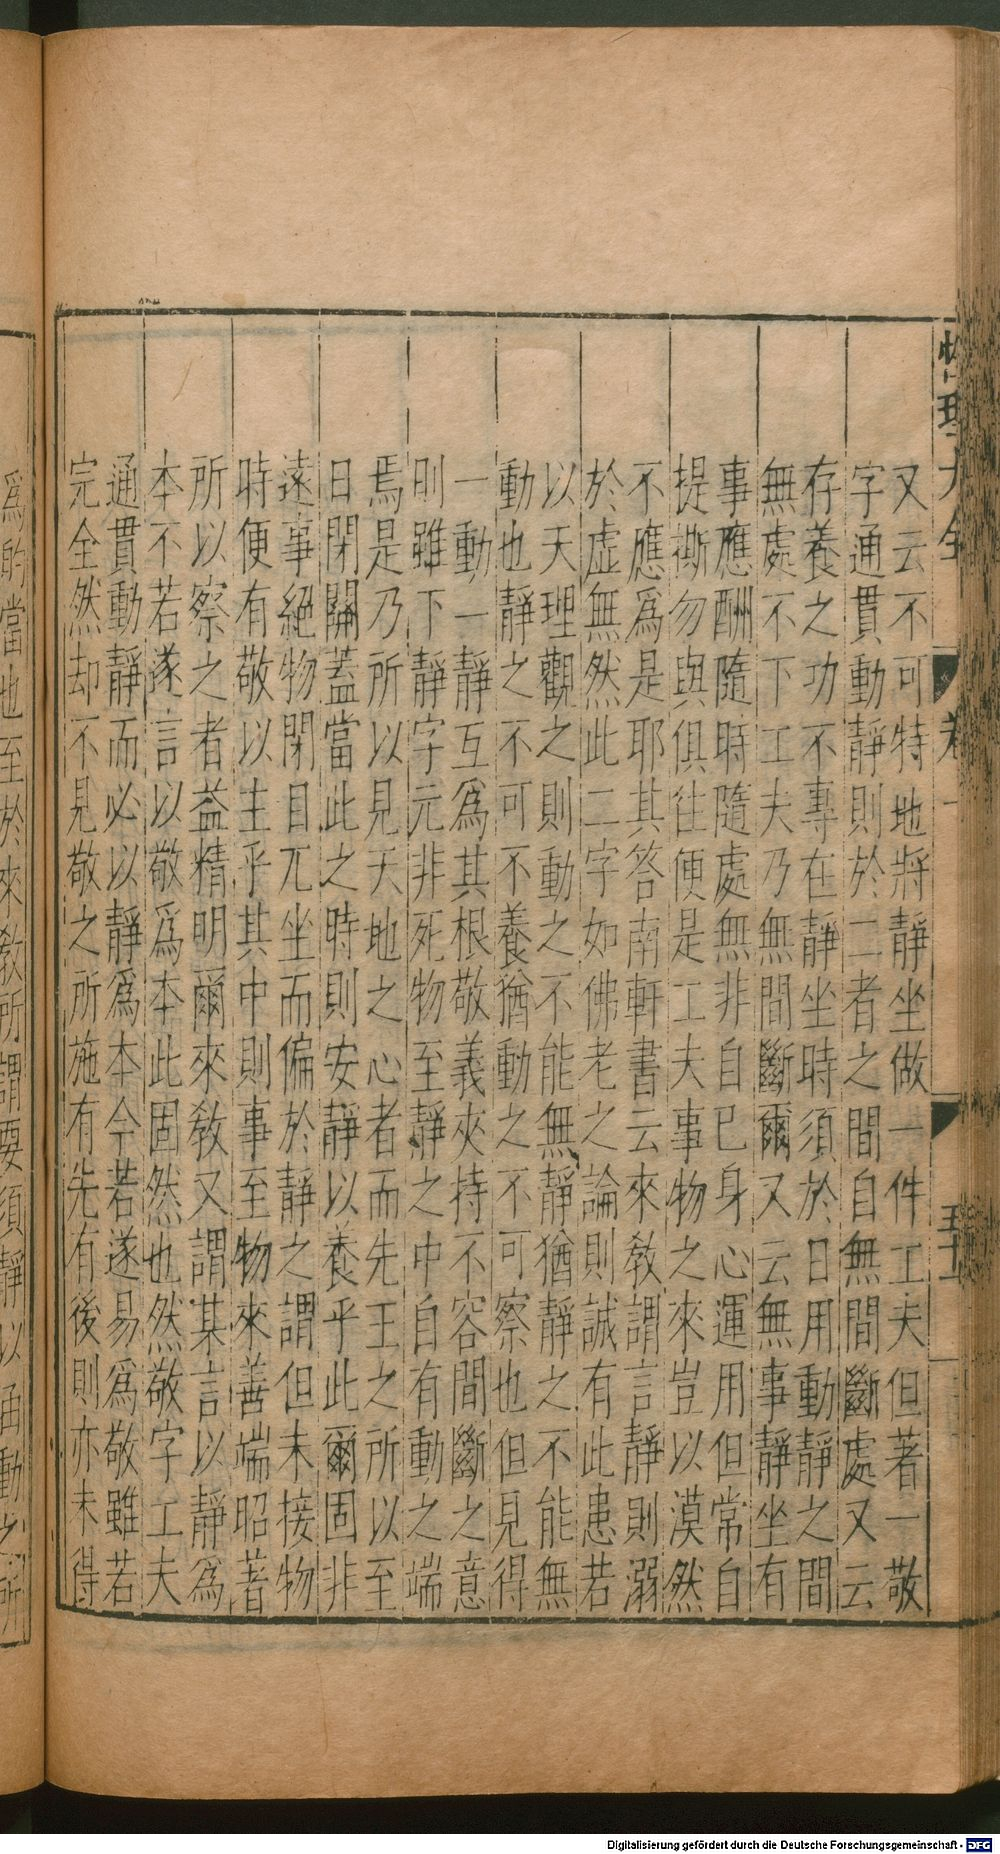 又云不可特地將靜坐做一件工夫但著一敬
字通貫動靜則於二者之間自無間斷處又云
存養之功不專在靜坐時須於日用動靜之間
無處不下工夫乃無間斷爾又云無事靜坐有
事應酬隨時隨處無非自己身心運用但常自
提撕勿與俱往便是工夫事物之來豈以漠然
不應爲是耶其答南軒書云來敎謂言靜則溺
於虛無然此二字如佛老之論則誠有此患若
以天理觀之則動之不能無靜猶靜之不能無
動也靜之不可不養猶動之不可察也但見得
一動一靜互爲其根敬義夾持不容間斷之意
則雖下靜字元非死物至靜之中自有動之端
焉是乃所以見天地之心者而先王之所以至
日閉關蓋當此之時則安靜以養乎此爾固非
遠事絕物閉目兀坐而偏於靜之謂但未接物
時便有敬以主乎其中則事至物來善端昭著
所以察之者益精明爾來敎又謂某言以靜爲
本不若遂言以敬爲本此固然也然敬字工夫
通貫動靜而必以靜爲本今若遂易爲敬雖若
完全然却不見敬之所施有先有後則亦未得
爲的當也至於來敎所謂要須靜以
動之所
性理大全
卷
Digitalisierung gefördert durch die Deutsche Forschungsgemeinschaft - DFG